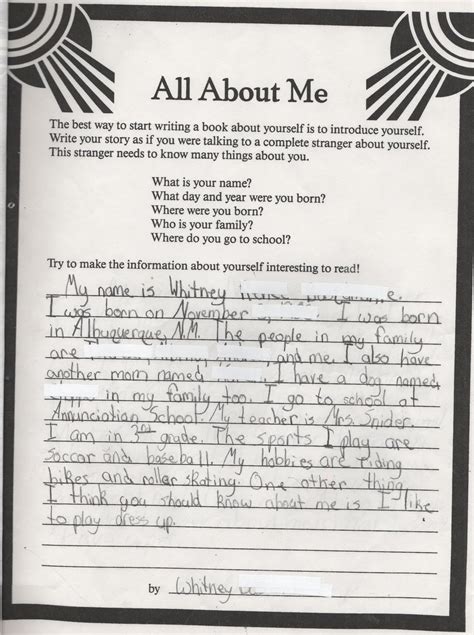 All About Me
The best way to start writing a book about yourself is to introduce yourself.
Write your story as if you were talking to a complete stranger about yourself.
This stranger needs to know many things about you.
What is your name?
What day and year were you born?
Where were you born?
Who is your family?
Where do you go to school?
Try to make the information about yourself interesting to read!
My name is Whitney
I was born on November I was born
in Albuquerque, N.M. The people in my family
are and me. I also have
another mom named I have a dog named
in my family too. I go to school at
Annunciation School. My teacher is Mrs. Snider.
I am in 3rd grade. The sports I play are
soccar and baseball. My hobbies are riding
bikes and roller skating. One other thing
I think you should know about me is I like
to play dress up.
by Whitney